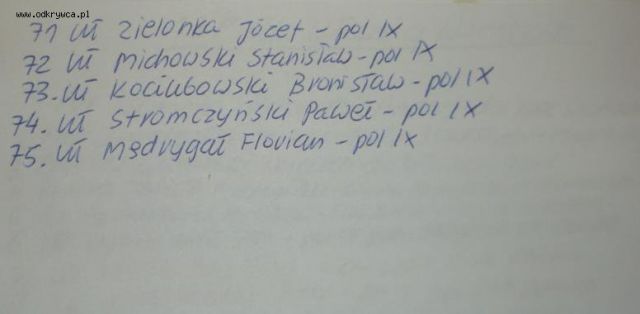 www.odkrywca.pl
71 VII Zielonka Józef - pol IX
72 VII Michowski Stanisław - pol IX
73. VII Kociubowski Bronisław - pol IX
74. VII Stromczyński Paweł - pol IX
75. VII Mądrygał Florian - pol IX